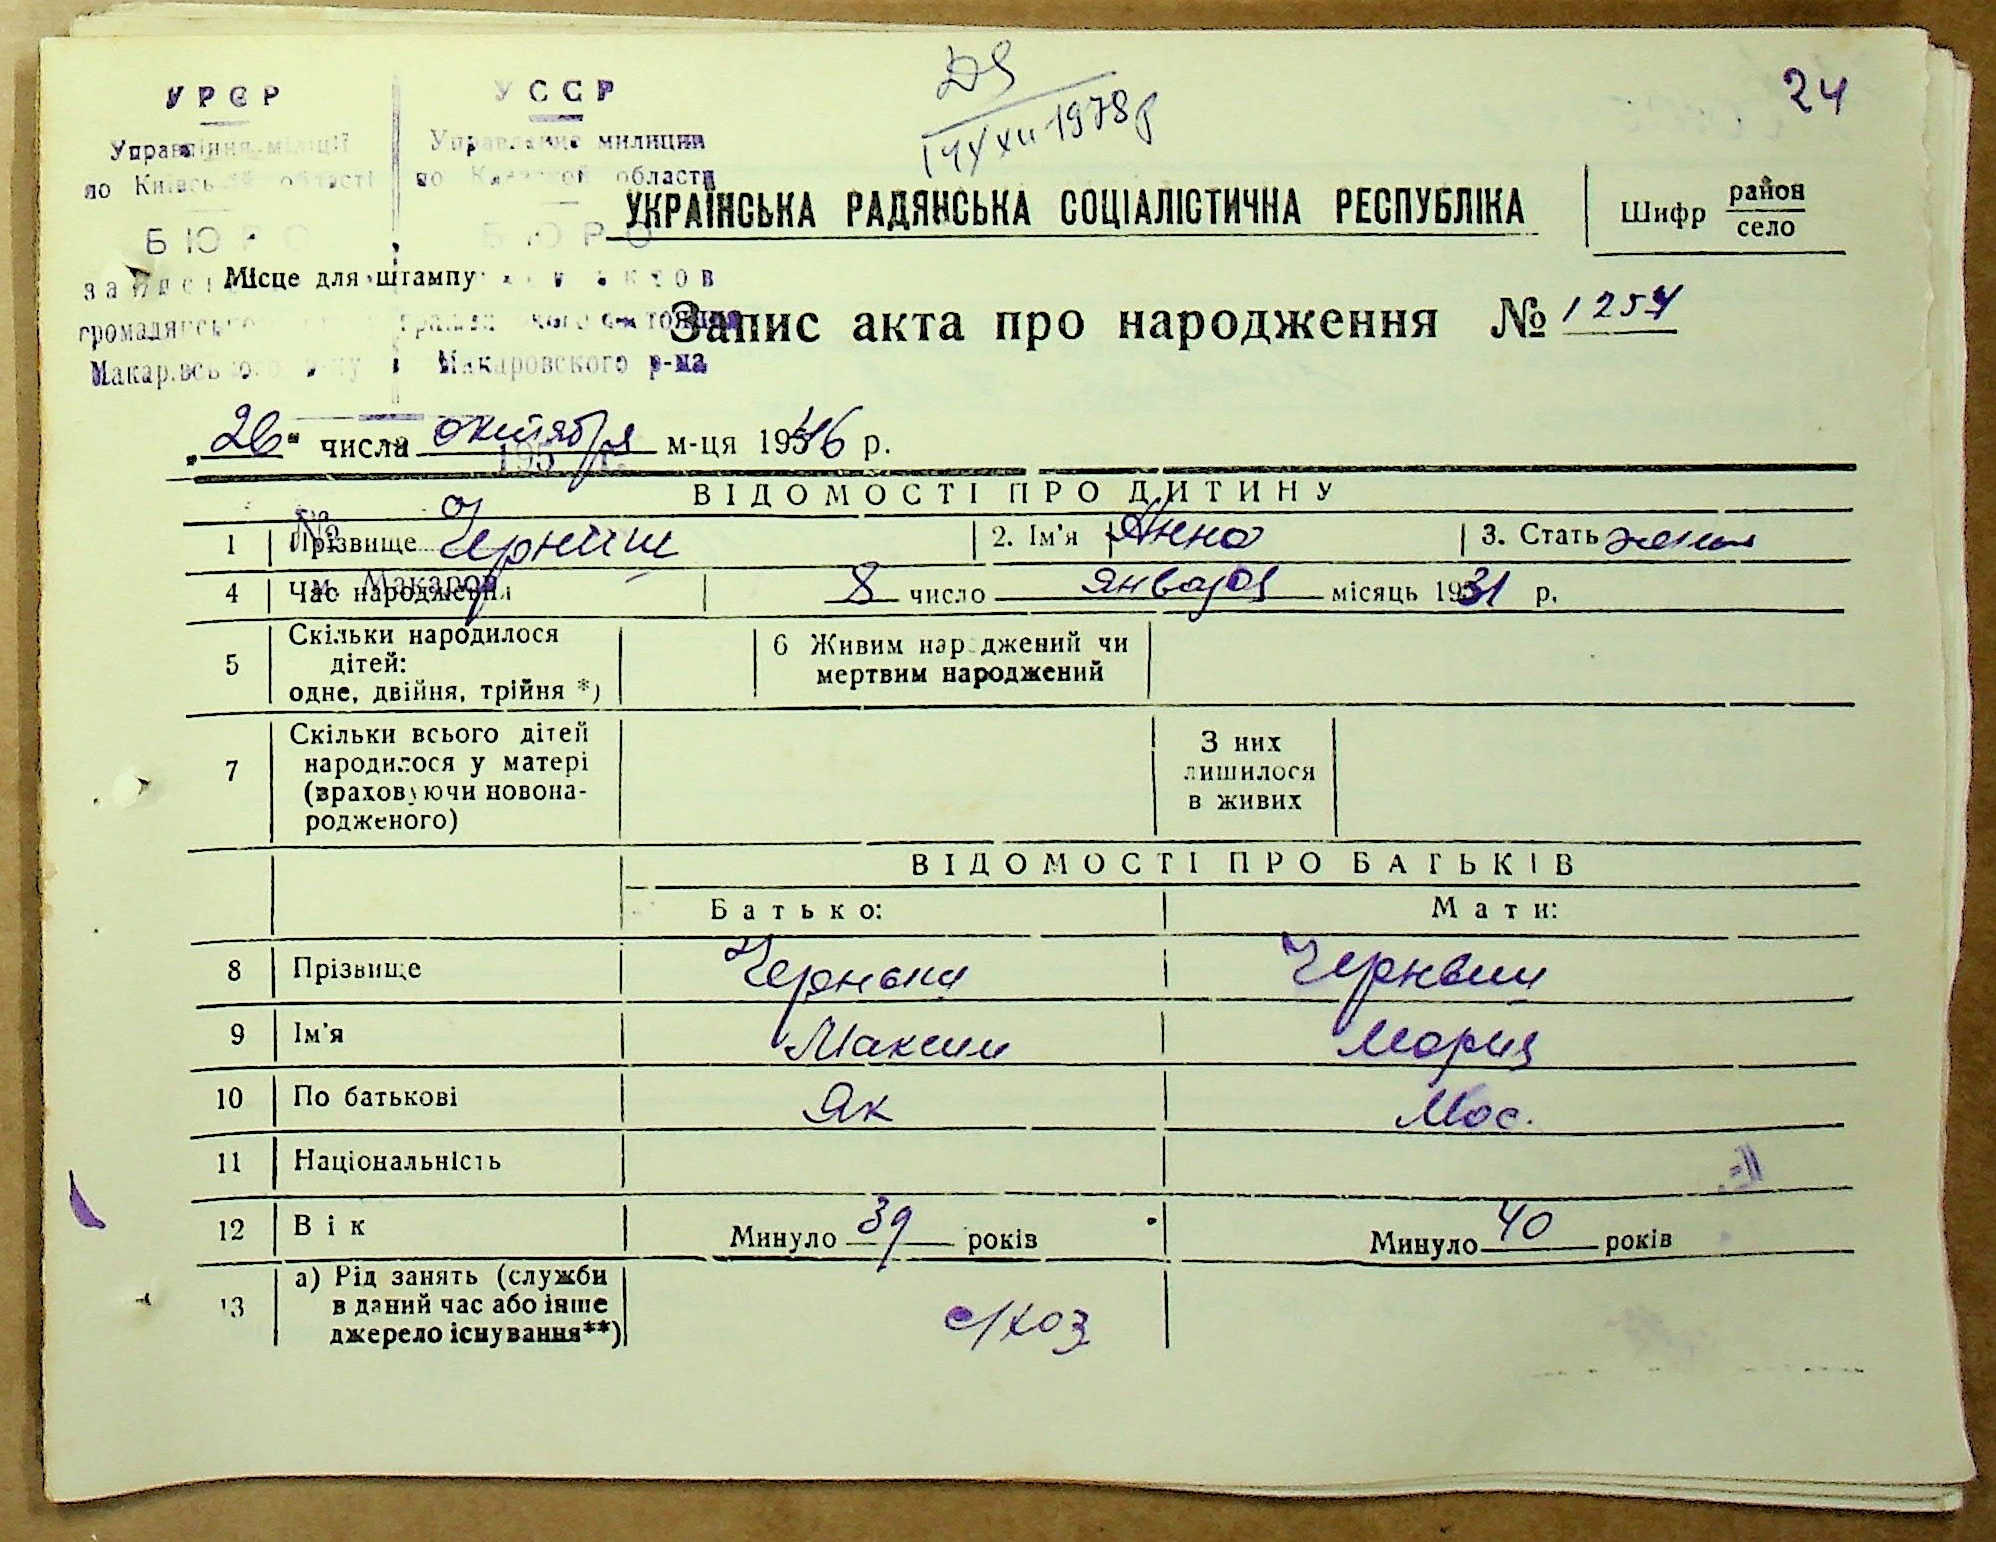 УРСР
УССР
Управління міліції
Управление милиции
по Київській області
по Киевской области
БЮРО
БЮРО
Макарівського р-ну
Макаровского р-на
14/XII-1978р
24
УКРАЇНСЬКА РАДЯНСЬКА СОЦІАЛІСТИЧНА РЕСПУБЛІКА
Шифр район
село
Місце для штампу
Запис акта про народження № 1254
„26" числа октября м-ця 1946 р.
195 г.
ВІДОМОСТІ ПРО ДИТИНУ
№
1 Прізвище Черниш 2. Ім'я Анна 3. Стать женск
м. Макаров
4 Час народження 8 число января місяць 1931 р.
5 Скільки народилося
дітей:
одне, двійня, трійня *)
6 Живим народжений чи
мертвим народжений
7 Скільки всього дітей
народилося у матері
(враховуючи новона-
родженого)
З них
лишилося
в живих
ВІДОМОСТІ ПРО БАТЬКІВ
Батько: Мати:
8 Прізвище Черныш Черныш
9 Ім'я Максим Мария
10 По батькові Як Мос.
11 Національність
12 Вік Минуло 39 років Минуло 40 років
13 а) Рід занять (служби
в даний час або інше
джерело існування**)
с/хоз